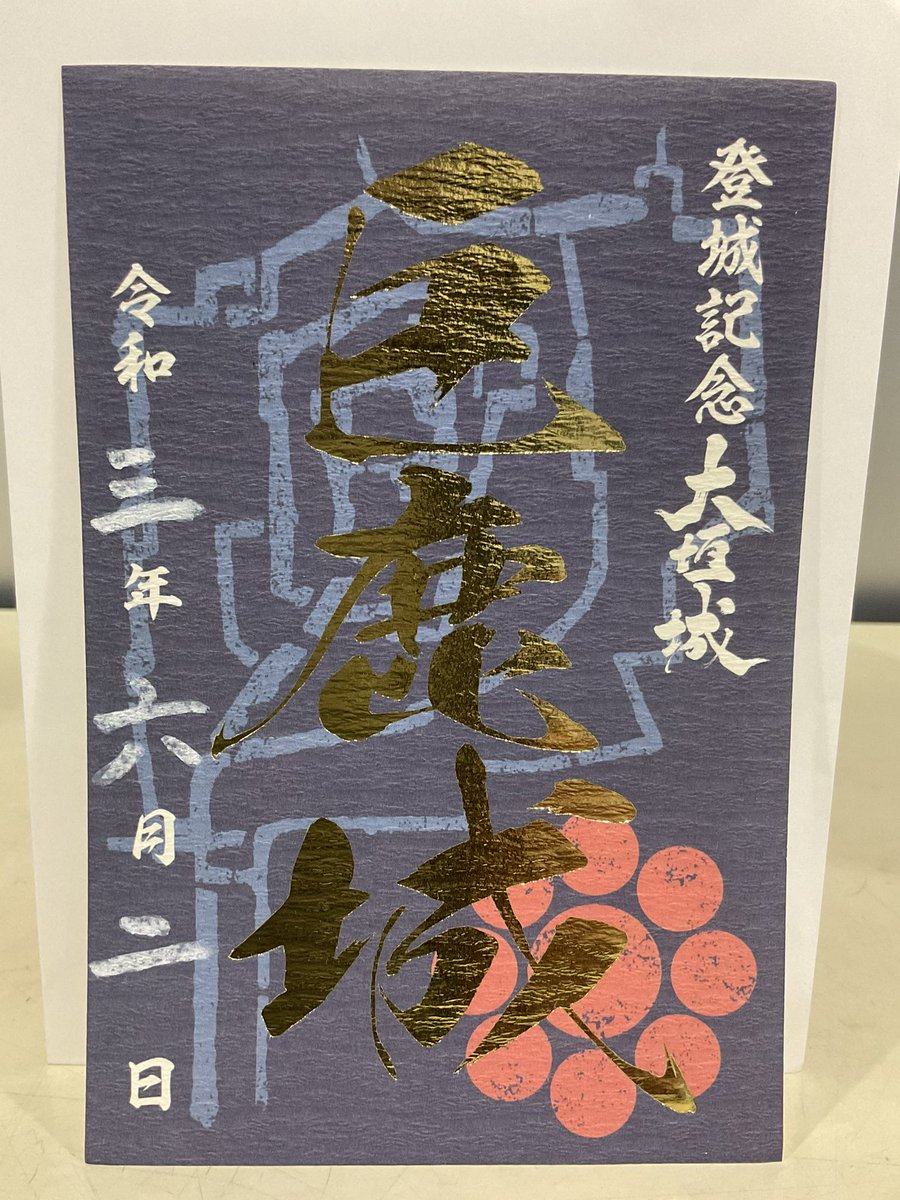 登城記念 大垣城
巨鹿城
令和三年六月二日